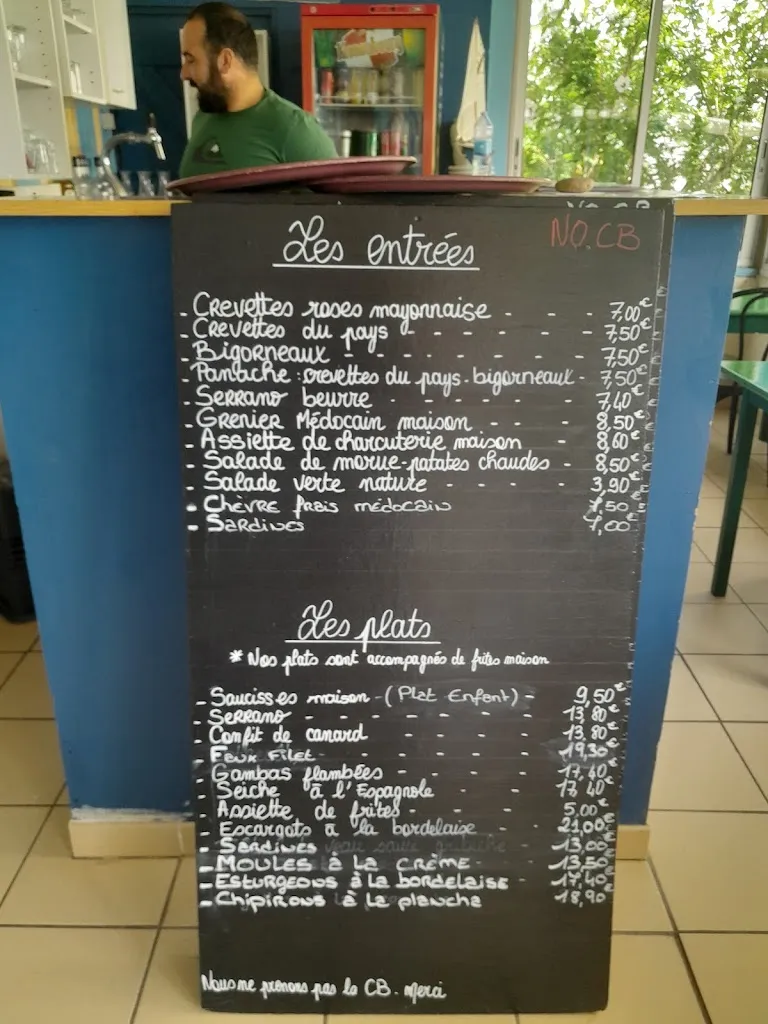 Les entrées NO.CB
- Crevettes roses mayonnaise - - - 7,00€
- Crevettes du pays - - - - - - 7,50€
- Bigorneaux - - - - - - - - 7,50€
- Panache: crevettes du pays-bigorneaux - 7,50€
- Serrano beurre - - - - - - 7,40€
- Grenier Médocain maison - - - 8,50€
- Assiette de charcuterie maison - 8,60€
- Salade de morue-patates chaudes - 8,50€
- Salade verte nature - - - - 3,90€
- Chèvre frais médocain 7,50€
- Sardines 7,00€
Les plats
* Nos plats sont accompagnés de frites maison
- Saucisses maison - (Plat Enfant) - 9,50€
- Serrano - - - - - - 13,80€
- Confit de canard - - - - 13,80€
- Filet - - - - - 19,30€
- Gambas flambées - - - - 17,40€
- Seiche à l'Espagnole - - - 17,40€
- Assiette de frites - - - - 5,00€
- Escargots à la bordelaise - - 21,00€
- Sardines - 13,00€
- Moules à la crème - - - 13,50€
- Esturgeons à la bordelaise - - 17,40€
- Chipirons à la plancha - - 18,90€
Nous ne prenons pas la CB. Merci